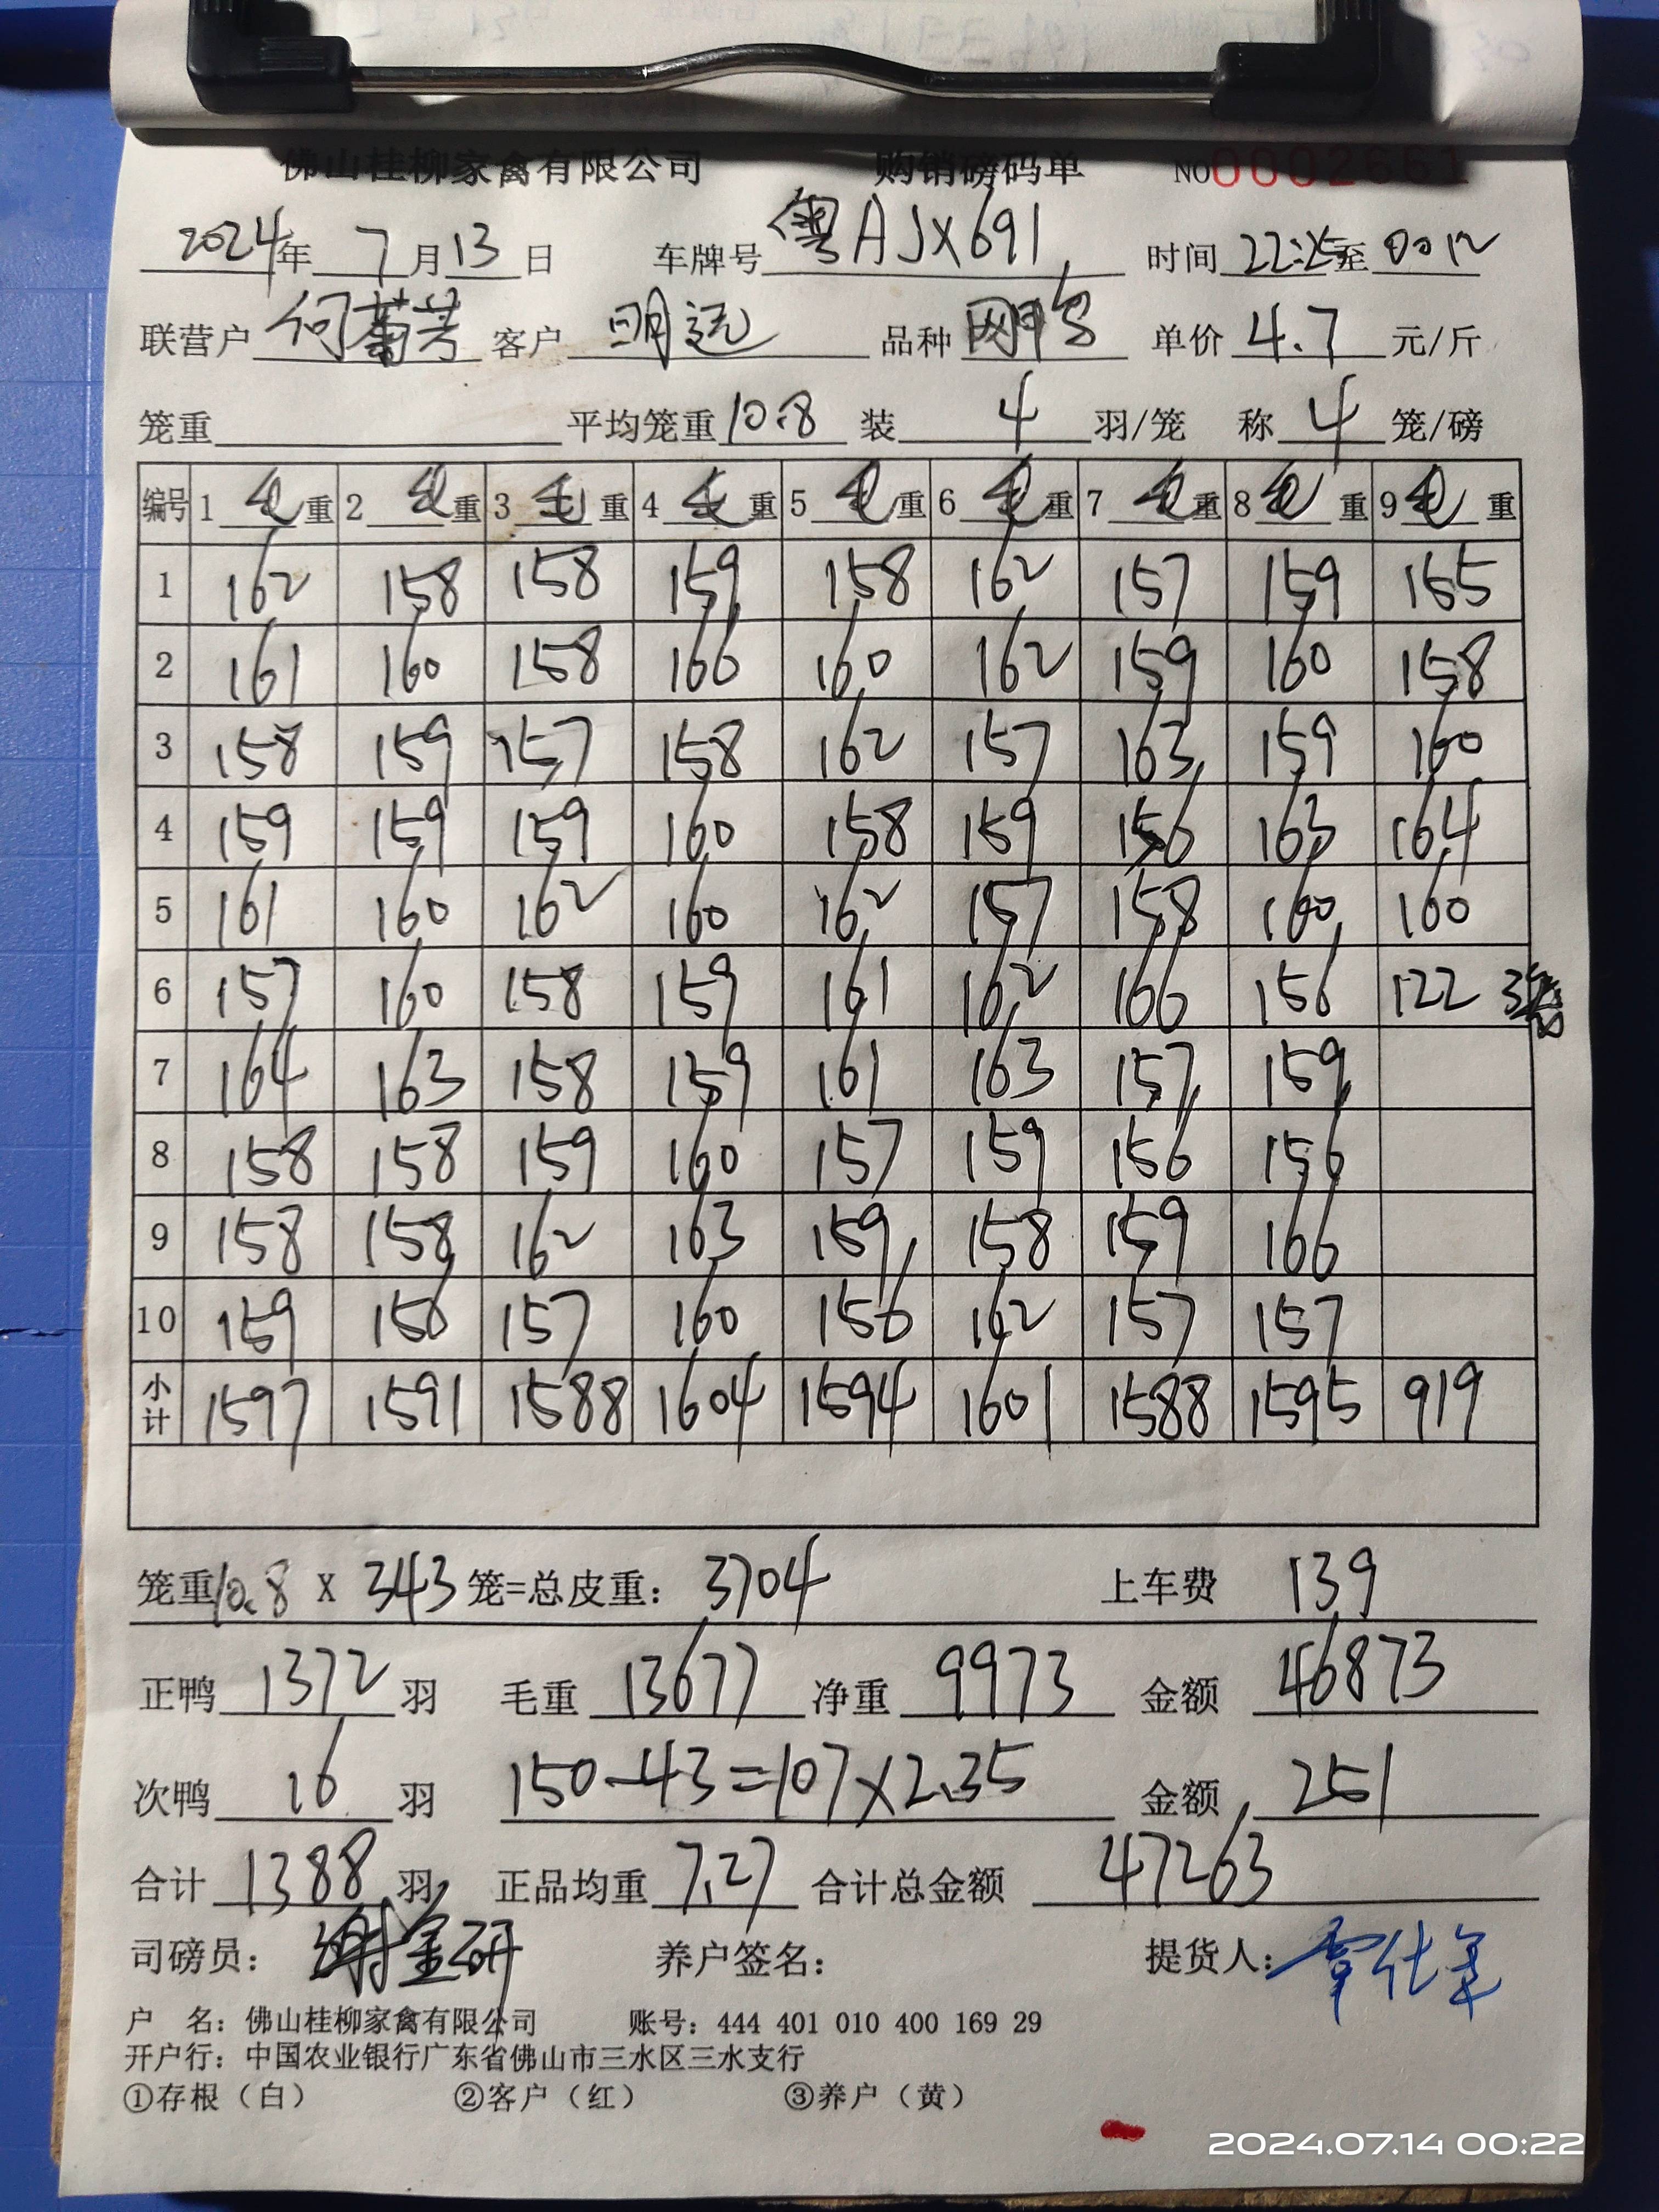 佛山桂柳家禽有限公司 购销磅码单 NO0002661
2024年 7月13日 车牌号 粤AJX691 时间 22:25至 0012
联营户 何 客户 明远 品种 单价 4.7 元/斤
笼重 平均笼重 10.8 装 4 羽/笼 称 4 笼/磅
编号 1 毛重 2 毛重 3 毛重 4 毛重 5 毛重 6 毛重 7 毛重 8 毛重 9 毛重
1 162 158 158 159 158 162 157 159 155
2 161 160 158 166 160 162 159 160 158
3 158 159 157 158 162 157 163 159 160
4 159 159 159 160 158 159 156 163 164
5 161 160 162 160 162 157 158 160 160
6 157 160 158 159 161 162 166 156 122 3
7 164 163 158 159 161 163 157 159
8 158 158 159 160 157 159 156 156
9 158 158 162 163 159 158 159 166
10 159 156 157 160 156 162 157 157
小计 1597 1591 1588 1604 1594 1601 1588 1595 919
笼重10.8 X 343 笼=总皮重: 3704 上车费 139
正鸭 1372 羽 毛重 13677 净重 9973 金额 46873
次鸭 16 羽 150-43=107×2.35 金额 251
合计 1388 羽 正品均重 7.27 合计总金额 47263
司磅员: 谢金研 养户签名: 提货人: 覃仕
户 名: 佛山桂柳家禽有限公司 账号: 444 401 010 400 169 29
开户行: 中国农业银行广东省佛山市三水区三水支行
①存根（白） ②客户（红） ③养户（黄）
2024.07.14 00:22